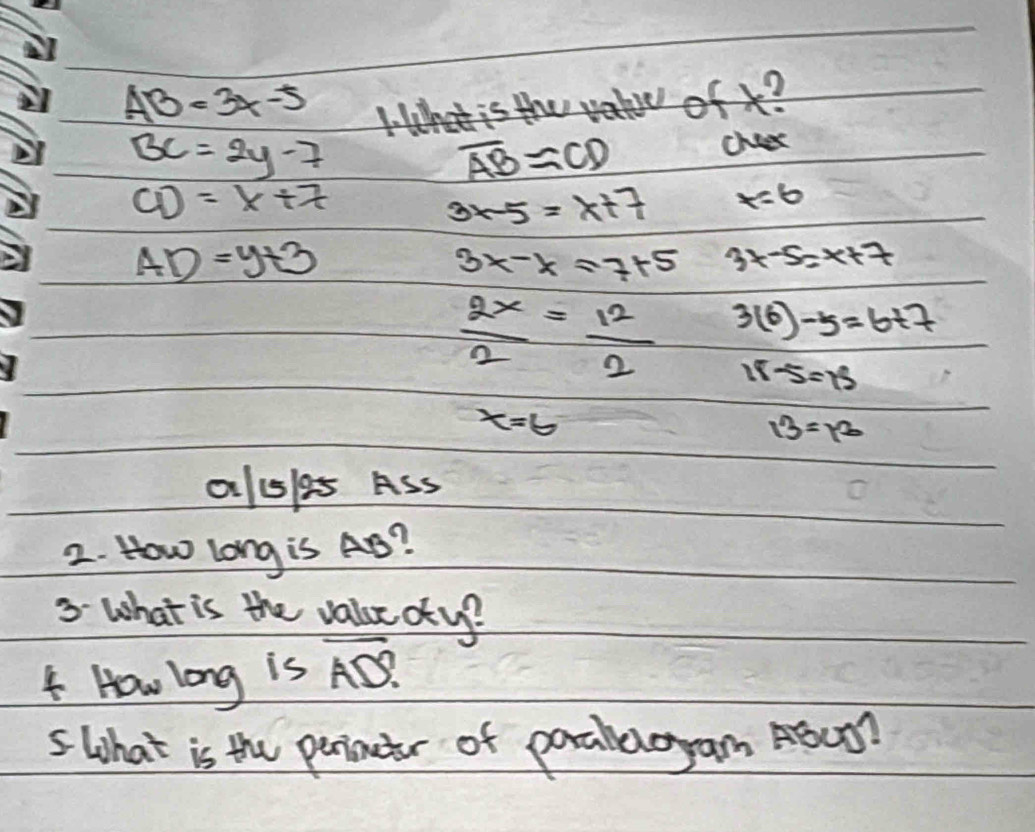 AB = 3x - 5
BC = 2y - 7
CD = x + 7
AD = y + 3
1. What is the value of x?
AB ≅ CD
3x - 5 = x + 7
3x - x = 7 + 5
2x = 12
2 2
x = 6
x = 6
3x - 5 = x + 7
3(6) - 5 = 6 + 7
18 - 5 = 13
13 = 13
/15/25 Ass
2. How long is AB?
3. What is the value of y?
4 How long is AD?
5 What is the perimeter of parallelogram ABCD?